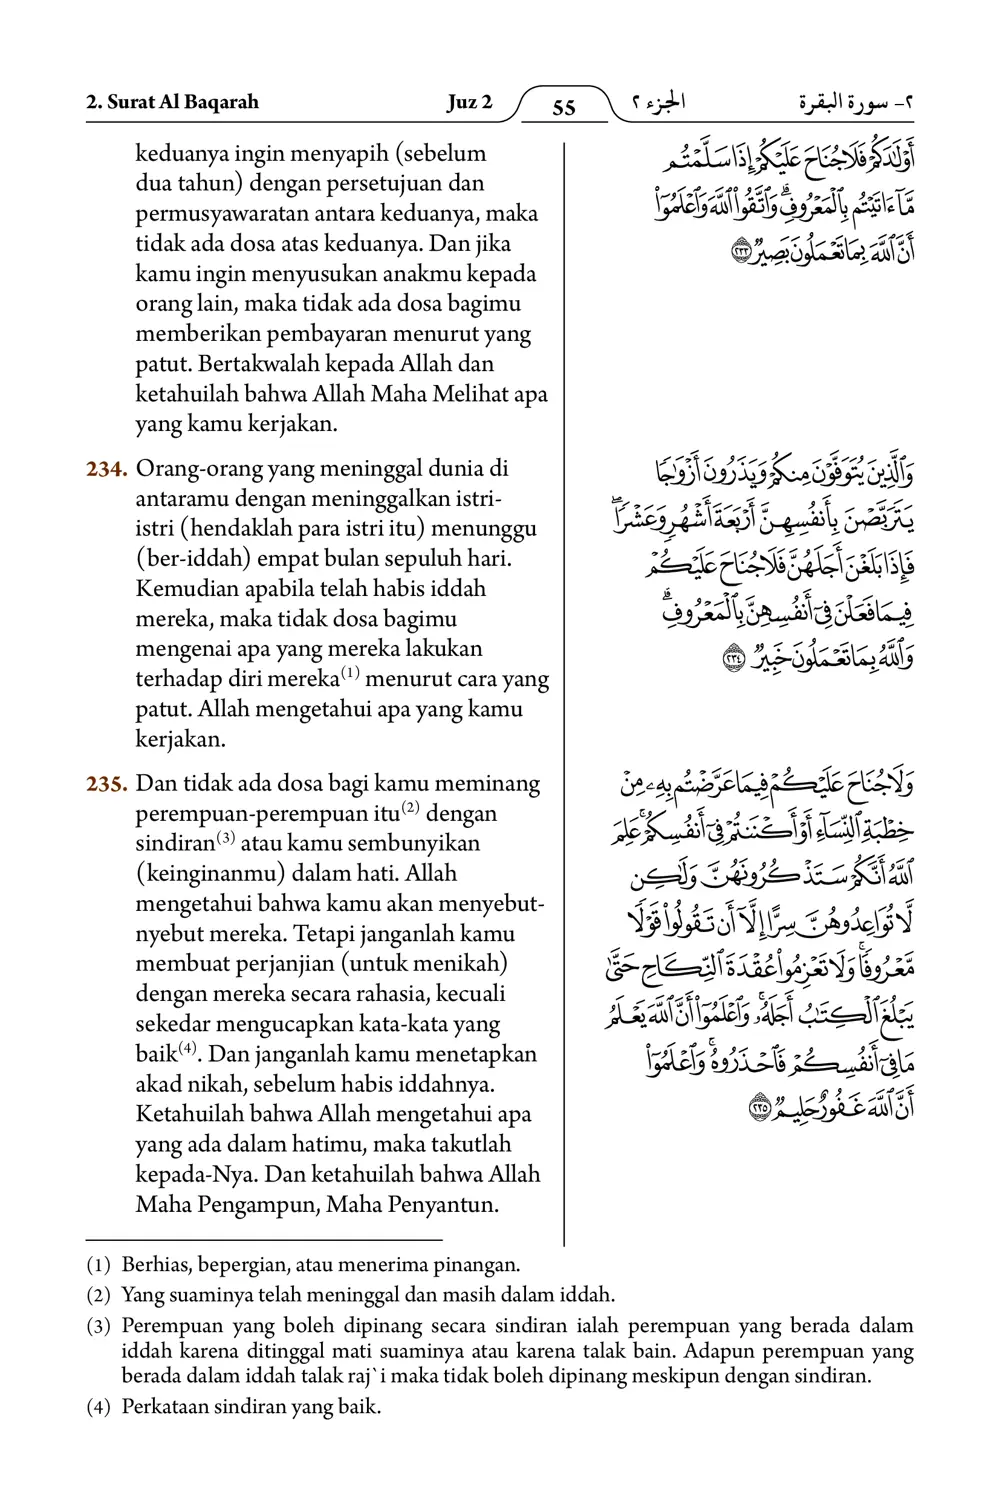 2. Surat Al Baqarah
Juz 2
55
الجزء ٢
٢- سورة البقرة
keduanya ingin menyapih (sebelum
dua tahun) dengan persetujuan dan
permusyawaratan antara keduanya, maka
tidak ada dosa atas keduanya. Dan jika
kamu ingin menyusukan anakmu kepada
orang lain, maka tidak ada dosa bagimu
memberikan pembayaran menurut yang
patut. Bertakwalah kepada Allah dan
ketahuilah bahwa Allah Maha Melihat apa
yang kamu kerjakan.
234. Orang-orang yang meninggal dunia di
antaramu dengan meninggalkan istri-
istri (hendaklah para istri itu) menunggu
(ber-iddah) empat bulan sepuluh hari.
Kemudian apabila telah habis iddah
mereka, maka tidak dosa bagimu
mengenai apa yang mereka lakukan
terhadap diri mereka(1) menurut cara yang
patut. Allah mengetahui apa yang kamu
kerjakan.
235. Dan tidak ada dosa bagi kamu meminang
perempuan-perempuan itu(2) dengan
sindiran(3) atau kamu sembunyikan
(keinginanmu) dalam hati. Allah
mengetahui bahwa kamu akan menyebut-
nyebut mereka. Tetapi janganlah kamu
membuat perjanjian (untuk menikah)
dengan mereka secara rahasia, kecuali
sekedar mengucapkan kata-kata yang
baik(4). Dan janganlah kamu menetapkan
akad nikah, sebelum habis iddahnya.
Ketahuilah bahwa Allah mengetahui apa
yang ada dalam hatimu, maka takutlah
kepada-Nya. Dan ketahuilah bahwa Allah
Maha Pengampun, Maha Penyantun.
أَوْلَٰدَكُمْ فَلَا جُنَاحَ عَلَيْكُمْ إِذَا سَلَّمْتُم
مَّآ ءَاتَيْتُم بِٱلْمَعْرُوفِۗ وَٱتَّقُوا۟ ٱللَّهَ وَٱعْلَمُوٓا۟
أَنَّ ٱللَّهَ بِمَا تَعْمَلُونَ بَصِيرٌ ٢٣٣
وَٱلَّذِينَ يُتَوَفَّوْنَ مِنكُمْ وَيَذَرُونَ أَزْوَٰجًا
يَتَرَبَّصْنَ بِأَنفُسِهِنَّ أَرْبَعَةَ أَشْهُرٍ وَعَشْرًاۖ
فَإِذَا بَلَغْنَ أَجَلَهُنَّ فَلَا جُنَاحَ عَلَيْكُمْ
فِيمَا فَعَلْنَ فِىٓ أَنفُسِهِنَّ بِٱلْمَعْرُوفِۗ
وَٱللَّهُ بِمَا تَعْمَلُونَ خَبِيرٌ ٢٣٤
وَلَا جُنَاحَ عَلَيْكُمْ فِيمَا عَرَّضْتُم بِهِۦ مِنْ
خِطْبَةِ ٱلنِّسَآءِ أَوْ أَكْنَنتُمْ فِىٓ أَنفُسِكُمْۚ عَلِمَ
ٱللَّهُ أَنَّكُمْ سَتَذْكُرُونَهُنَّ وَلَٰكِن
لَّا تُوَاعِدُوهُنَّ سِرًّا إِلَّآ أَن تَقُولُوا۟ قَوْلًا
مَّعْرُوفًاۚ وَلَا تَعْزِمُوا۟ عُقْدَةَ ٱلنِّكَاحِ حَتَّىٰ
يَبْلُغَ ٱلْكِتَٰبُ أَجَلَهُۥۚ وَٱعْلَمُوٓا۟ أَنَّ ٱللَّهَ يَعْلَمُ
مَا فِىٓ أَنفُسِكُمْ فَٱحْذَرُوهُۚ وَٱعْلَمُوٓا۟
أَنَّ ٱللَّهَ غَفُورٌ حَلِيمٌ ٢٣٥
(1) Berhias, bepergian, atau menerima pinangan.
(2) Yang suaminya telah meninggal dan masih dalam iddah.
(3) Perempuan yang boleh dipinang secara sindiran ialah perempuan yang berada dalam
iddah karena ditinggal mati suaminya atau karena talak bain. Adapun perempuan yang
berada dalam iddah talak raj`i maka tidak boleh dipinang meskipun dengan sindiran.
(4) Perkataan sindiran yang baik.